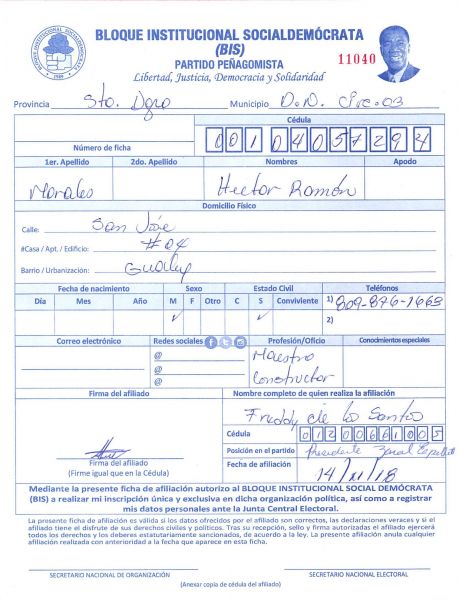 BLOQUE INSTITUCIONAL SOCIALDEMÓCRATA
(BIS)
PARTIDO PEÑAGOMISTA
11040
Libertad, Justicia, Democracia y Solidaridad
Provincia Sto. Dgo Municipio D.N. Circ. 03
Número de ficha
Cédula
1er. Apellido 2do. Apellido Nombres Apodo
Morales Hector Ramón
Domicilio Físico
Calle: San José
#Casa / Apt. / Edificio: #04
Barrio / Urbanización:
Fecha de nacimiento Sexo Estado Civil Teléfonos
Día Mes Año M F Otro C S Conviviente 1) 809-876-1663
2)
Correo electrónico Redes sociales Profesión/Oficio Conocimientos especiales
@
@
@
Maestro
Constructor
Firma del afiliado Nombre completo de quien realiza la afiliación
Freddy de los Santos
Cédula 01200661005
Posición en el partido Presidente Zonal
Fecha de afiliación 14/11/18
Firma del afiliado
(Firme igual que en la Cédula)
Mediante la presente ficha de afiliación autorizo al BLOQUE INSTITUCIONAL SOCIAL DEMÓCRATA
(BIS) a realizar mi inscripción única y exclusiva en dicha organización política, así como a registrar
mis datos personales ante la Junta Central Electoral.
La presente afiliación es válida si los datos ofrecidos por el afiliado son correctos, las declaraciones veraces y si el
afiliado tiene el disfrute de sus derechos civiles y políticos. Tras su recepción, sello y firma autorizados el afiliado ejercerá
todos los derechos y los deberes estatutariamente sancionados, de acuerdo a la ley. La presente afiliación anula cualquier
afiliación realizada con anterioridad a la fecha que aparece en esta ficha.
SECRETARIO NACIONAL DE ORGANIZACIÓN SECRETARIO NACIONAL ELECTORAL
(Anexar copia de cédula del afiliado)